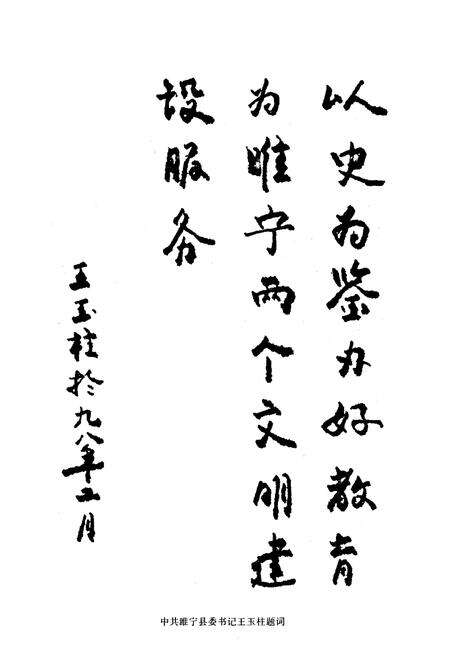 以史为鉴办好教育
为睢宁两个文明建
设服务
王玉柱於九八年二月
中共睢宁县委书记王玉柱题词